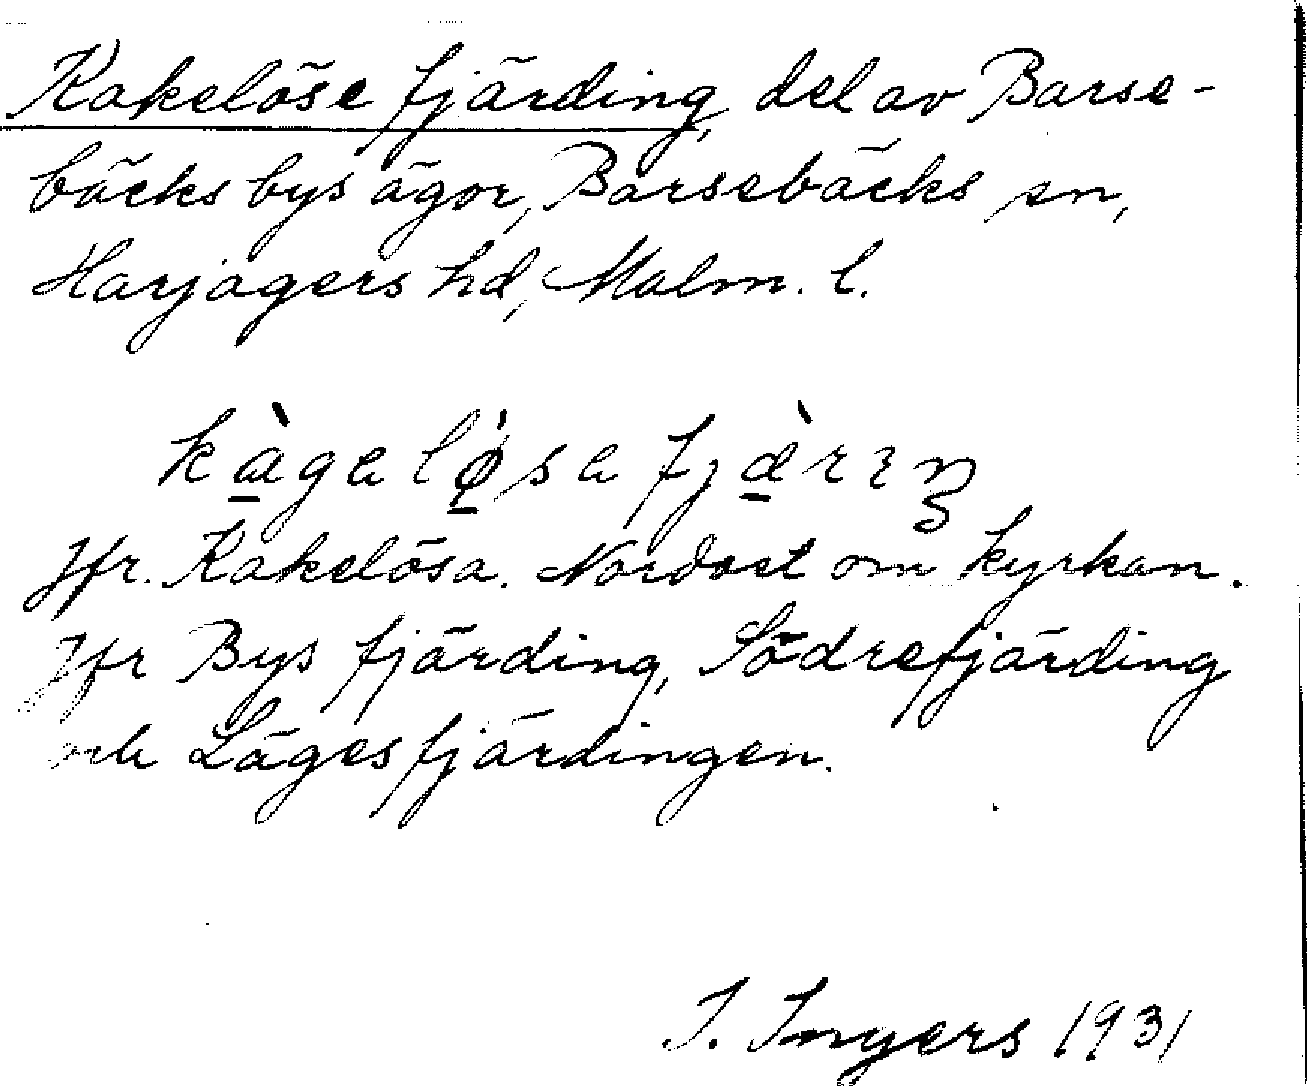 Kakelöse fjärding, del av Barse-
bäcks bys ägor, Barsebäcks sn,
Harjagers hd, Malm. l.
kàgalø̀sa fjæ̀rɪŋ
Jfr. Kakelösa. Nordost om kyrkan.
Jfr Bys fjärding, Södrefjärding
och Lägesfjärdingen.
I. Ingers 1931